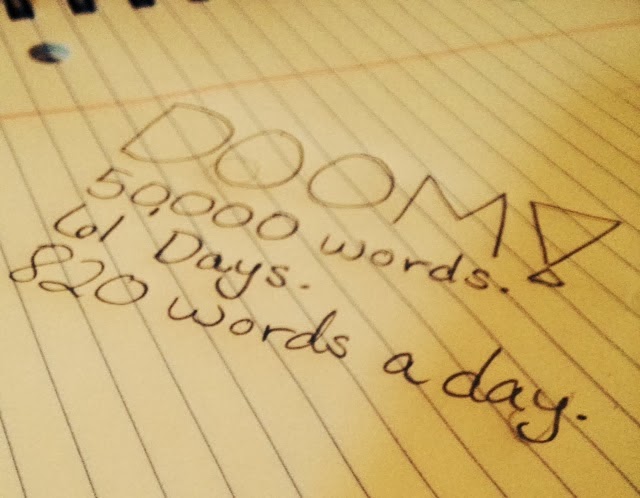 DOOM!
50,000 words.
61 Days.
820 words a day.